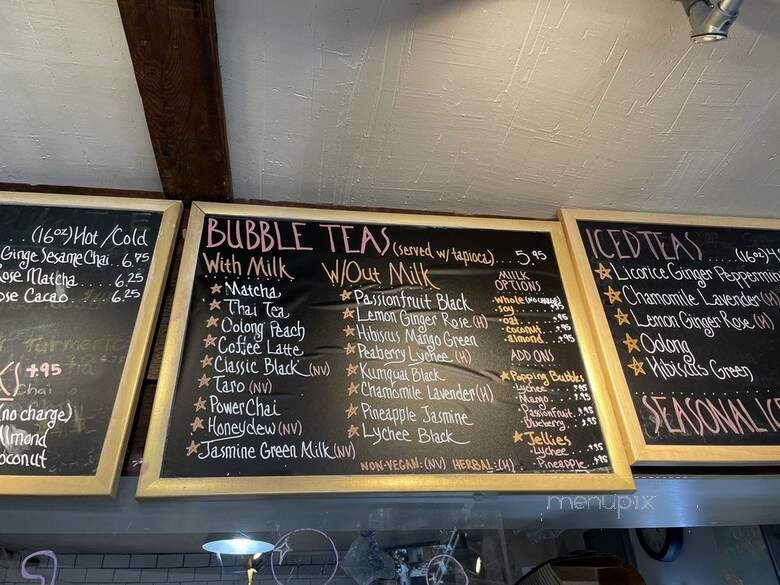 (16oz) Hot/Cold
Ginge Sesame Chai. 6.75
ose Matcha 6.25
ose Cacao. 6.25
+.95
Chai
(no charge)
lmond
oconut
BUBBLE TEAS (served w/ tapioca)..... 5.95
With Milk
Matcha
Thai Tea
Oolong Peach
Coffee Latte
Classic Black (NV)
Taro (NV)
Power Chai
Honeydew (NV)
Jasmine Green Milk (NV)
W/Out Milk
Passionfruit Black
Lemon Ginger Rose (H)
Hibiscus Mango Green
Peaberry Lychee (H)
Kumquat Black
Chamomile Lavender (H)
Pineapple Jasmine
Lychee Black
MILK
OPTIONS
whole (no charge)
soy .95
oat .95
coconut .95
almond .95
ADD ONS
Popping Bubbles
Lychee .95
Mango .95
Passionfruit .95
Blueberry .95
Jellies
Lychee .95
Pineapple .95
NON-VEGAN: (NV) HERBAL: (H)
ICED TEAS (16oz) 4
Licorice Ginger Peppermin
Chamomile Lavender (H
Lemon Ginger Rose (H)
Oolong
Hibiscus Green
SEASONAL ICE
menupix